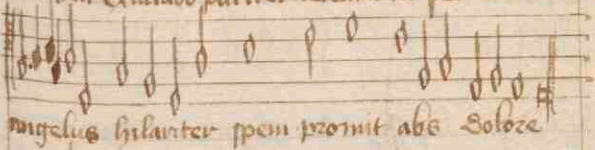 angelus hilariter spem promit abs dolore